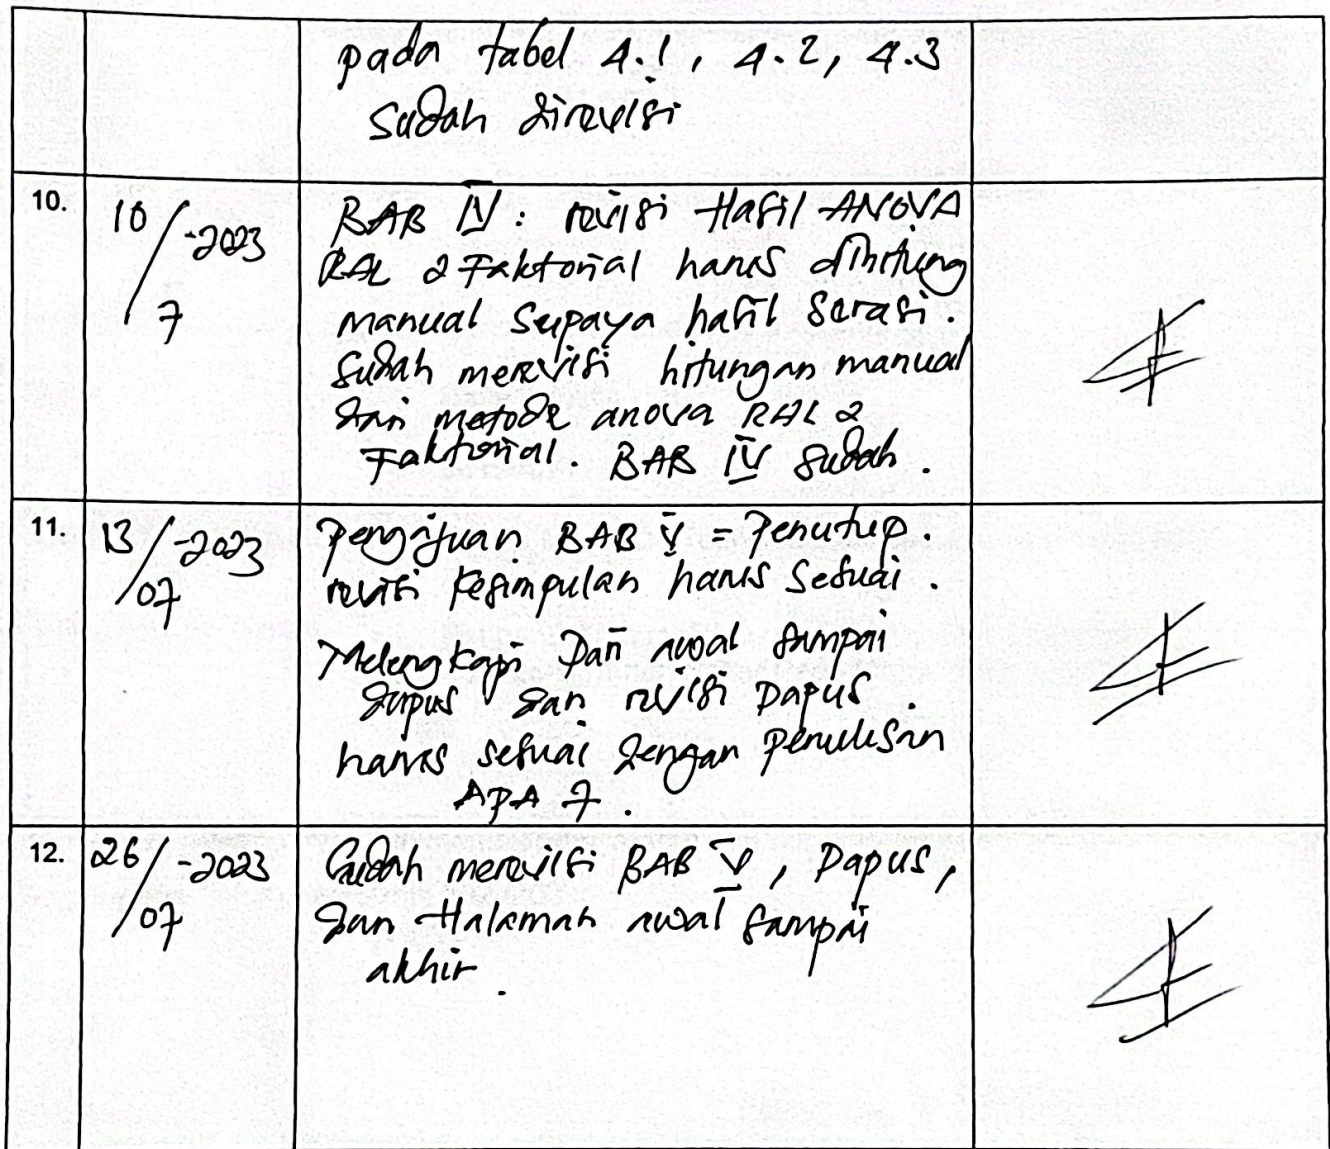 pada tabel 4.1, 4.2, 4.3
sudah direvisi
10.
10/7-2023
BAB IV: revisi Hasil ANOVA
RAL 2 Faktorial harus dihitung
manual supaya hasil serasi.
Sudah merevisi hitungan manual
dari metode anova RAL 2
Faktorial. BAB IV sudah.
11.
13/07-2023
Pengajuan BAB V = Penutup.
revisi kesimpulan harus sesuai.
Melengkapi Dari awal sampai
dapus dan revisi Dapus.
harus sesuai dengan penulisan
APA 7.
12.
26/07-2023
Sudah merevisi BAB V, Dapus,
dan Halaman awal sampai
akhir.